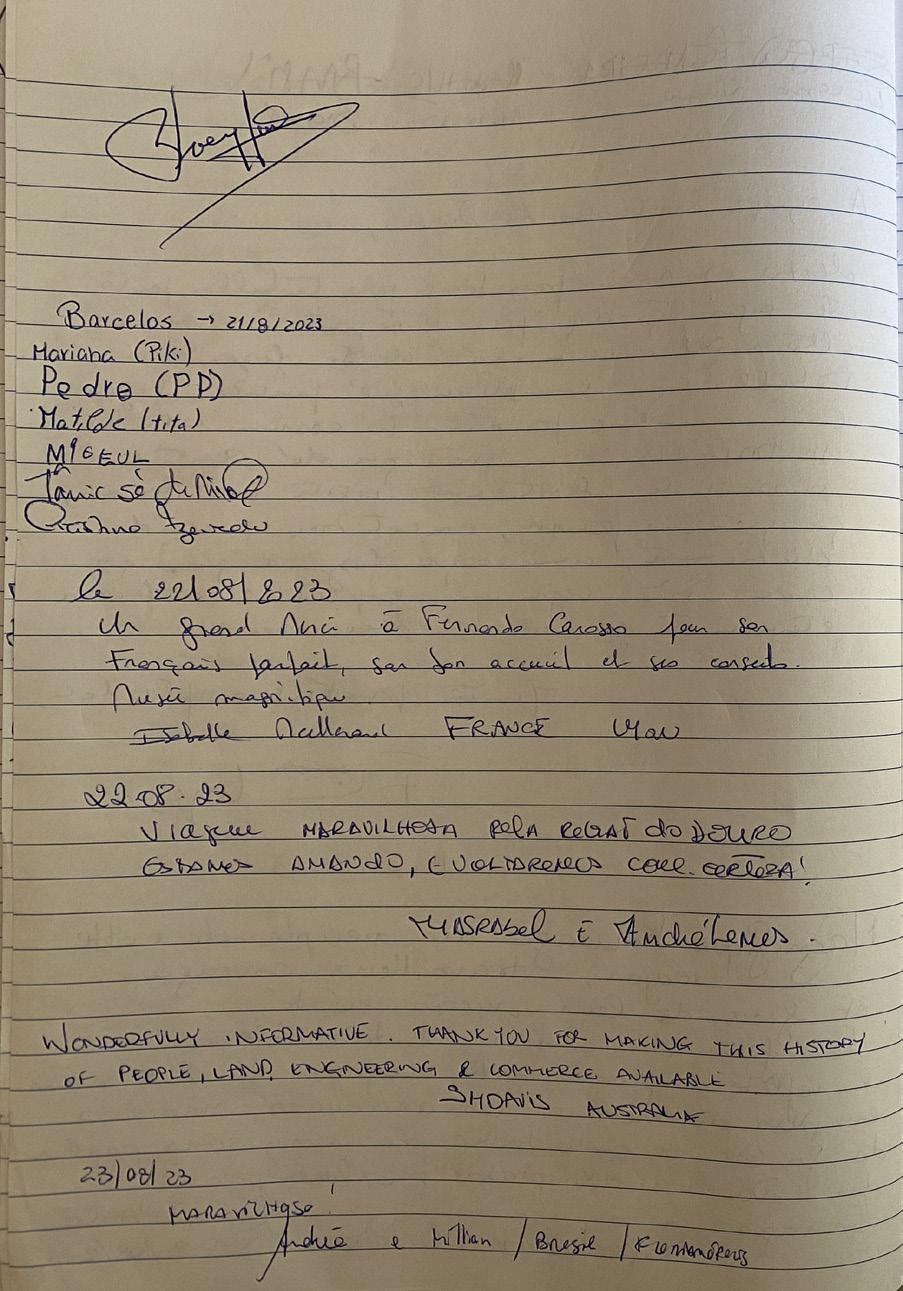 Barcelos → 21/8/2023
Mariana (Piki)
Pedro (PP)
Matilde (tita)
MIGEUL
Azevedo
le 22/08/2023
Un grand Merci à Fernando Carosso pour son
Français parfait, son bon accueil et ses conseils.
Musée magnifique
Isabelle FRANCE
22.08.23
Viagem MARAVILHOSA PELA REGIÃO do DOURO
ESTAMOS AMANDO, E VOLTAREMOS COM CERTEZA!
E André Lemes.
WONDERFULLY INFORMATIVE. THANK YOU FOR MAKING THIS HISTORY
OF PEOPLE, LAND, ENGINEERING & COMMERCE AVAILABLE
SHDAVIS AUSTRALIA
23/08/23
MARAVILHOSO!
André e Millian / Brasil / Florianópolis